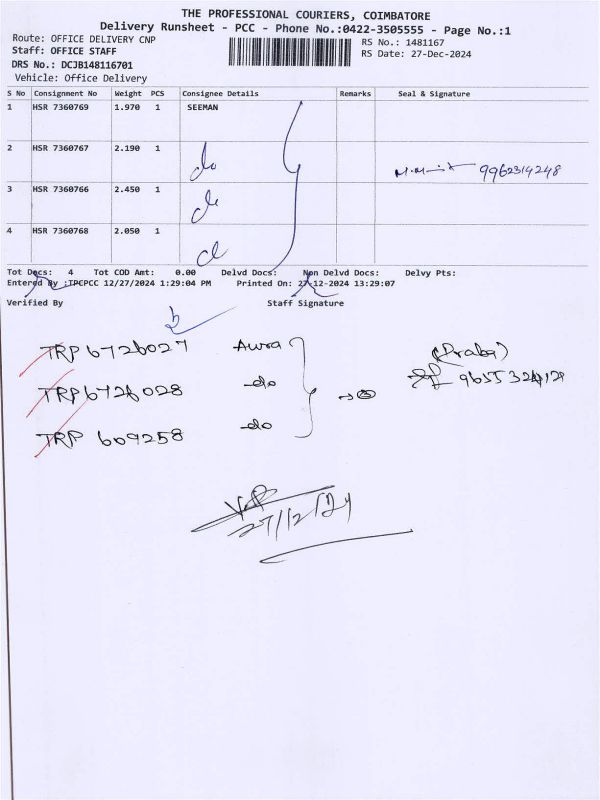 THE PROFESSIONAL COURIERS, COIMBATORE
Delivery Runsheet - PCC - Phone No.:0422-3505555 - Page No.:1
Route: OFFICE DELIVERY CNP
RS No.: 1481167
Staff: OFFICE STAFF
RS Date: 27-Dec-2024
DRS No.: DCJB148116701
Vehicle: Office Delivery
S No Consignment No Weight PCS Consignee Details Remarks Seal & Signature
1 HSR 7360769 1.970 1 SEEMAN
2 HSR 7360767 2.190 1 do 9962314248
3 HSR 7360766 2.450 1 do
4 HSR 7360768 2.050 1
Tot Docs: 4 Tot COD Amt: 0.00 Delvd Docs: Non Delvd Docs: Delvy Pts:
Entered By :TPCPCC 12/27/2024 1:29:04 PM Printed On: 27-12-2024 13:29:07
Verified By Staff Signature
TRP 6726027 Aura
(Praba)
TRP 6726028 do
TRP 609258 do
27/12/24